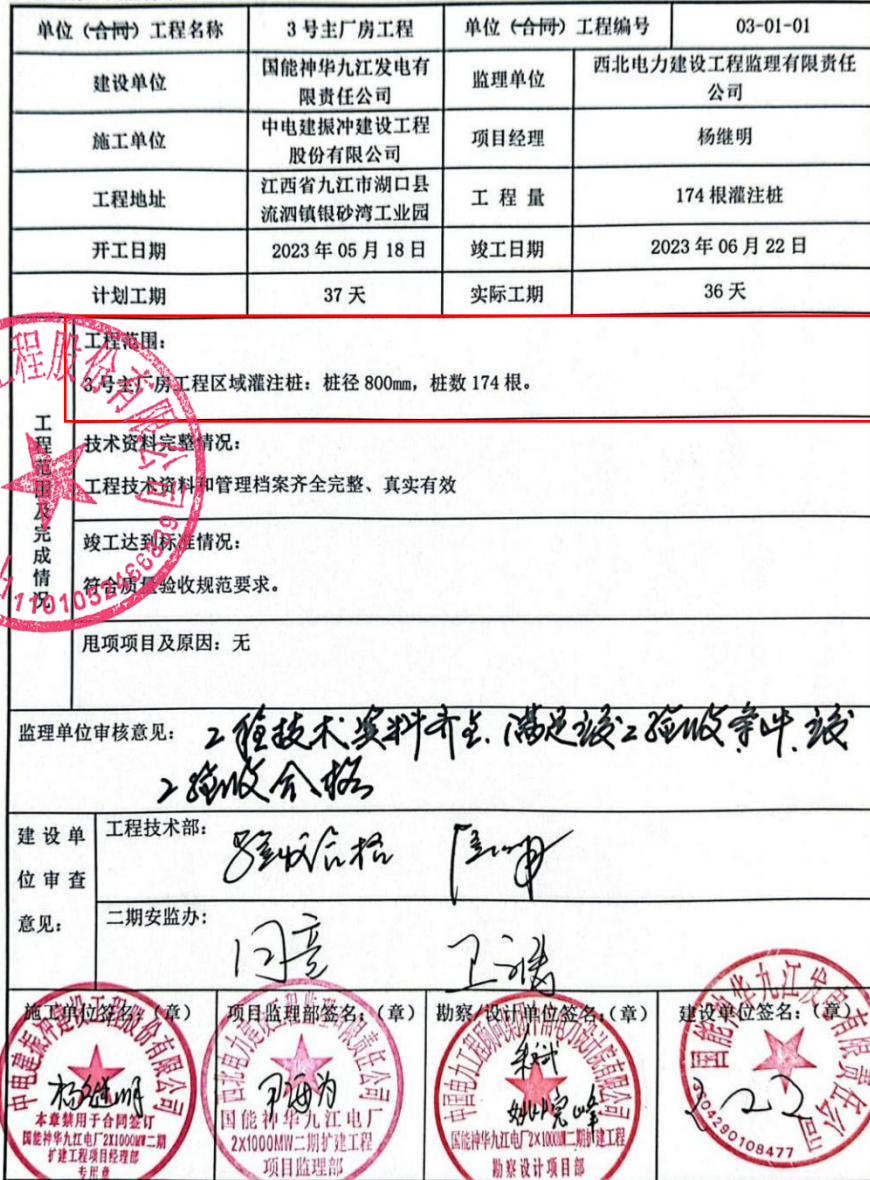 单位（合同）工程名称 3号主厂房工程 单位（合同）工程编号 03-01-01
建设单位 国能神华九江发电有限责任公司 监理单位 西北电力建设工程监理有限责任公司
施工单位 中电建振冲建设工程股份有限公司 项目经理 杨继明
工程地址 江西省九江市湖口县流泗镇银砂湾工业园 工程量 174根灌注桩
开工日期 2023年05月18日 竣工日期 2023年06月22日
计划工期 37天 实际工期 36天
工程范围及完成情况
工程范围：
3号主厂房工程区域灌注桩：桩径800mm，桩数174根。
技术资料完整情况：
工程技术资料和管理档案齐全完整、真实有效
竣工达到标准情况：
符合质量验收规范要求。
甩项项目及原因：无
工程股份有限公司
监理单位审核意见：工程技术资料齐全.满足竣工验收条件.竣
工验收合格
建设单位审查意见：
工程技术部：
验收合格
二期安监办：
同意
施工单位签名：（章） 项目监理部签名：（章） 勘察/设计单位签名：（章） 建设单位签名：（章）
中电建振冲建设工程股份有限公司
杨继明
本章禁用于合同签订
国能神华九江电厂2X1000MW二期
扩建工程项目经理部
专用章
西北电力建设工程监理有限责任公司
国能神华九江电厂
2X1000MW二期扩建工程
项目监理部
国能神华九江电厂2X1000MW二期扩建工程
勘察设计项目部
国能神华九江发电有限责任公司